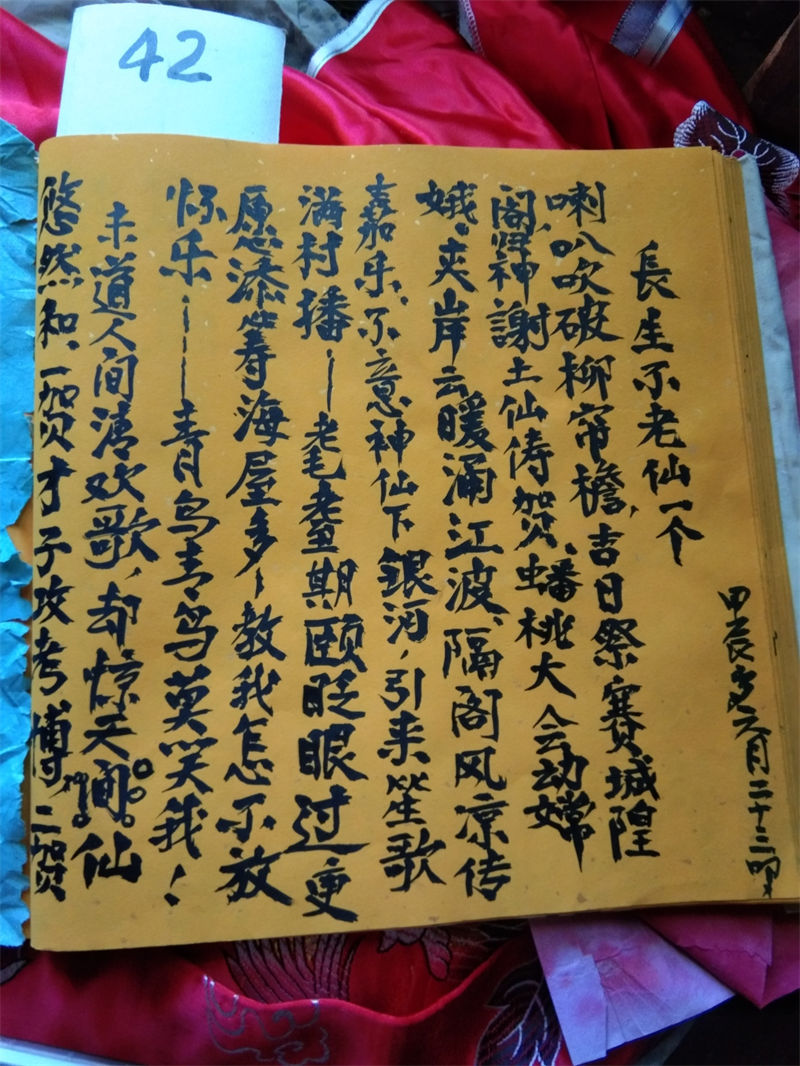 42
長生不老仙一个
甲辰六月二十三
喇叭吹破柳帘檐,吉日祭賽城隍
阁,将神謝土仙俦贺、蟠桃大会动嫦
娥,夹岸云暖涌江波、隔阁风凉传
嘉乐、不意神仙下銀河,引来笙歌
满村播——老耄耋期颐眨眼过更
愿添筹海屋多,教我怎不放
怀乐———青鸟青鸟莫笑我!
未道人间清欢歌,却惊天阊仙
悠然和、一贺才子攻考博二贺